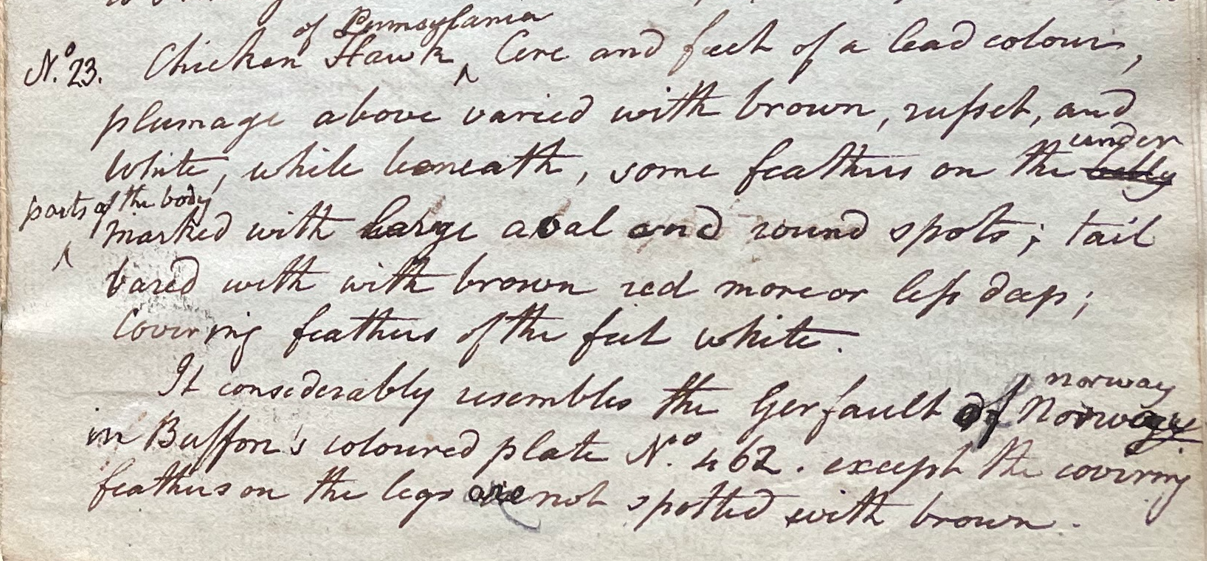 of Pennsylvania
No. 23. Chicken Hawk ^ Cere and feet of a lead colour,
plumage above varied with brown, rufset, and
White, while beneath, some feathers on the belly under
parts of the body
^ marked with large aval and round spots; tail
bared with with brown red more or lefs deep;
Covering feathers of the feet white.
It considerably resembles the Gerfault of Norway norway
in Buffon's coloured plate No. 462. except the covering
feathers on the legs are not spotted with brown.